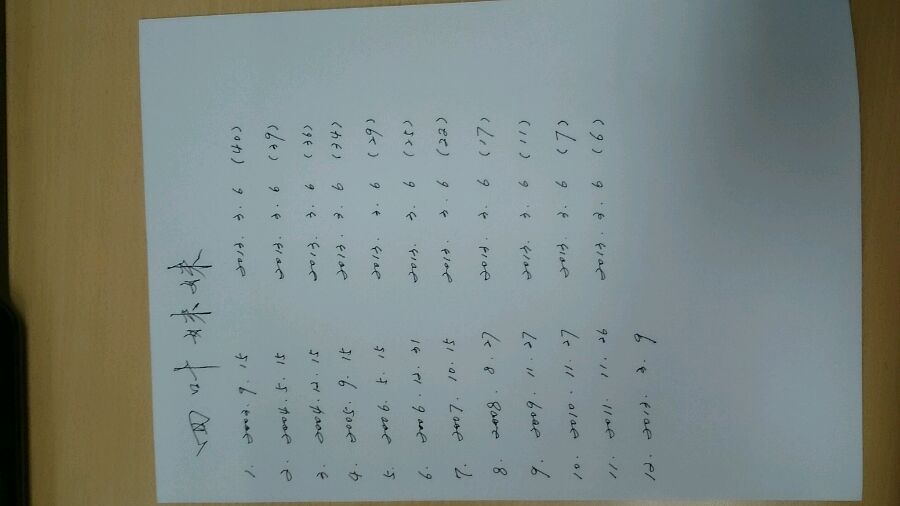 1. 2003. 9. 15 2013. 3. 9 (40)
2. 2004. 5. 15 2013. 3. 9 (39)
3. 2004. 12. 15 2013. 3. 9 (36)
4. 2005. 9. 15 2013. 3. 9 (34)
5. 2006. 5. 15 2013. 3. 9 (29)
6. 2006. 12. 2013. 3. 9 (25)
7. 2007. 10. 15 2013. 3. 9 (22)
8. 2008. 8. 25 2013. 3. 9 (17)
9. 2009. 11. 25 2013. 3. 9 (11)
10. 2010. 11. 25 2013. 3. 9 (7)
11. 2011. 11. 26 2013. 3. 9 (6)
12. 2013. 3. 9